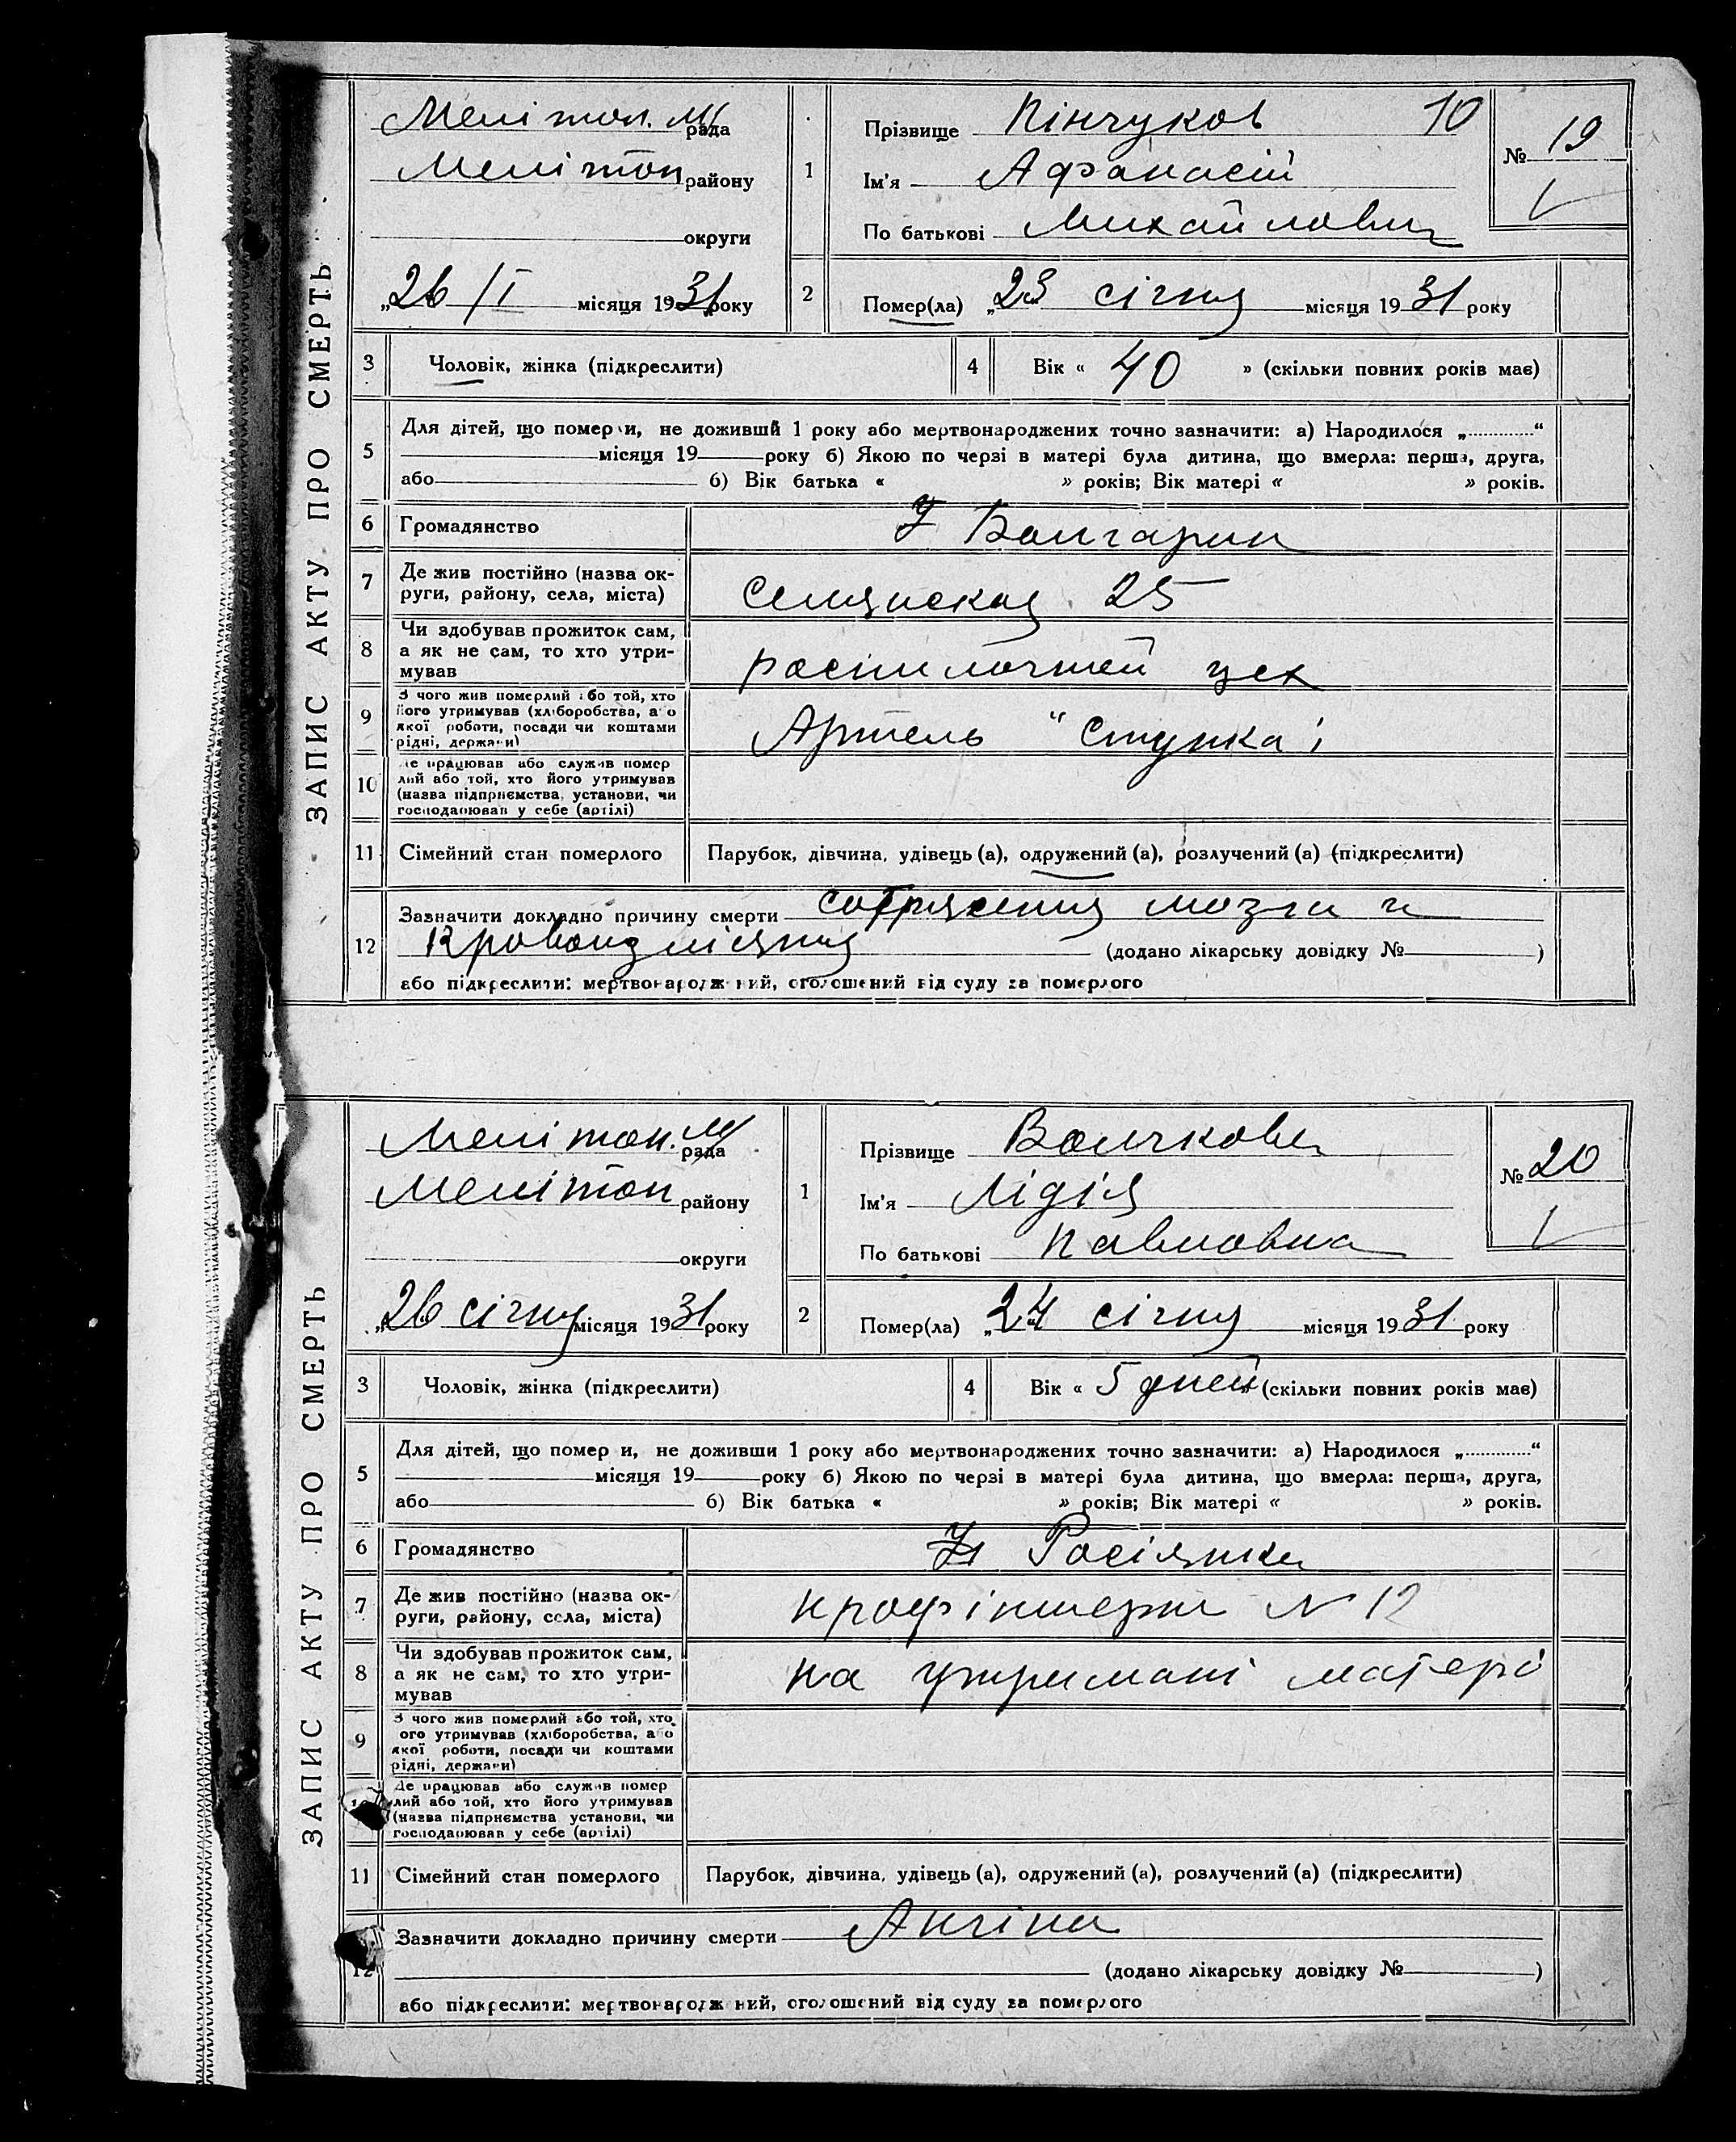 ЗАПИС АКТУ ПРО СМЕРТЬ
Мелітоп. М/рада
Мелітоп району
округи
„26/I місяця 1931 року
1
Прізвище Пінчуков 10
Ім'я Афанасій
По батькові Михайлович
№ 19
2
Помер(ла) „23 січня місяця 1931 року
3 Чоловік, жінка (підкреслити)
4 Вік « 40 » (скільки повних років має)
5 Для дітей, що померли, не доживши 1 року або мертвонароджених точно зазначити: а) Народилося „............“
місяця 19 року б) Якою по черзі в матері була дитина, що вмерла: перша, друга,
або б) Вік батька « » років; Вік матері « » років.
6 Громадянство У Болгарин
7 Де жив постійно (назва ок-
руги, району, села, міста) Селянская 25
8 Чи здобував прожиток сам,
а як не сам, то хто утри-
мував цех
9 З чого жив померлий або той, хто
його утримував (хліборобства, або
якої роботи, посади чи коштами
рідні, держави) Артель "Ступка"
10 Де працював або служив помер
лий або той, хто його утримував
(назва підприємства, установи, чи
господарював у себе (артілі)
11 Сімейний стан померлого Парубок, дівчина, удівець (а), одружений (а), розлучений (а) (підкреслити)
12 Зазначити докладно причину смерти сотрясения мозга и
(додано лікарську довідку № )
або підкреслити: мертвонароджений, оголошений від суду за померлого
ЗАПИС АКТУ ПРО СМЕРТЬ
Мелітоп. М/рада
Мелітоп району
округи
„26 січня місяця 1931 року
1
Прізвище Волчкова
Ім'я Лідія
По батькові Павловна
№ 20
2
Помер(ла) „24 січня місяця 1931 року
3 Чоловік, жінка (підкреслити)
4 Вік « 5 дней » (скільки повних років має)
5 Для дітей, що померли, не доживши 1 року або мертвонароджених точно зазначити: а) Народилося „............“
місяця 19 року б) Якою по черзі в матері була дитина, що вмерла: перша, друга,
або б) Вік батька « » років; Вік матері « » років.
6 Громадянство Росіянка
7 Де жив постійно (назва ок-
руги, району, села, міста) Профінтерн N 12
8 Чи здобував прожиток сам,
а як не сам, то хто утри-
мував на утримані матері
9 З чого жив померлий або той, хто
його утримував (хліборобства, або
якої роботи, посади чи коштами
рідні, держави)
10 Де працював або служив помер
лий або той, хто його утримував
(назва підприємства установи, чи
господарював у себе (артілі)
11 Сімейний стан померлого Парубок, дівчина, удівець (а), одружений (а), розлучений (а) (підкреслити)
12 Зазначити докладно причину смерти Ангіна
(додано лікарську довідку № )
або підкреслити: мертвонароджений, оголошений від суду за померлого